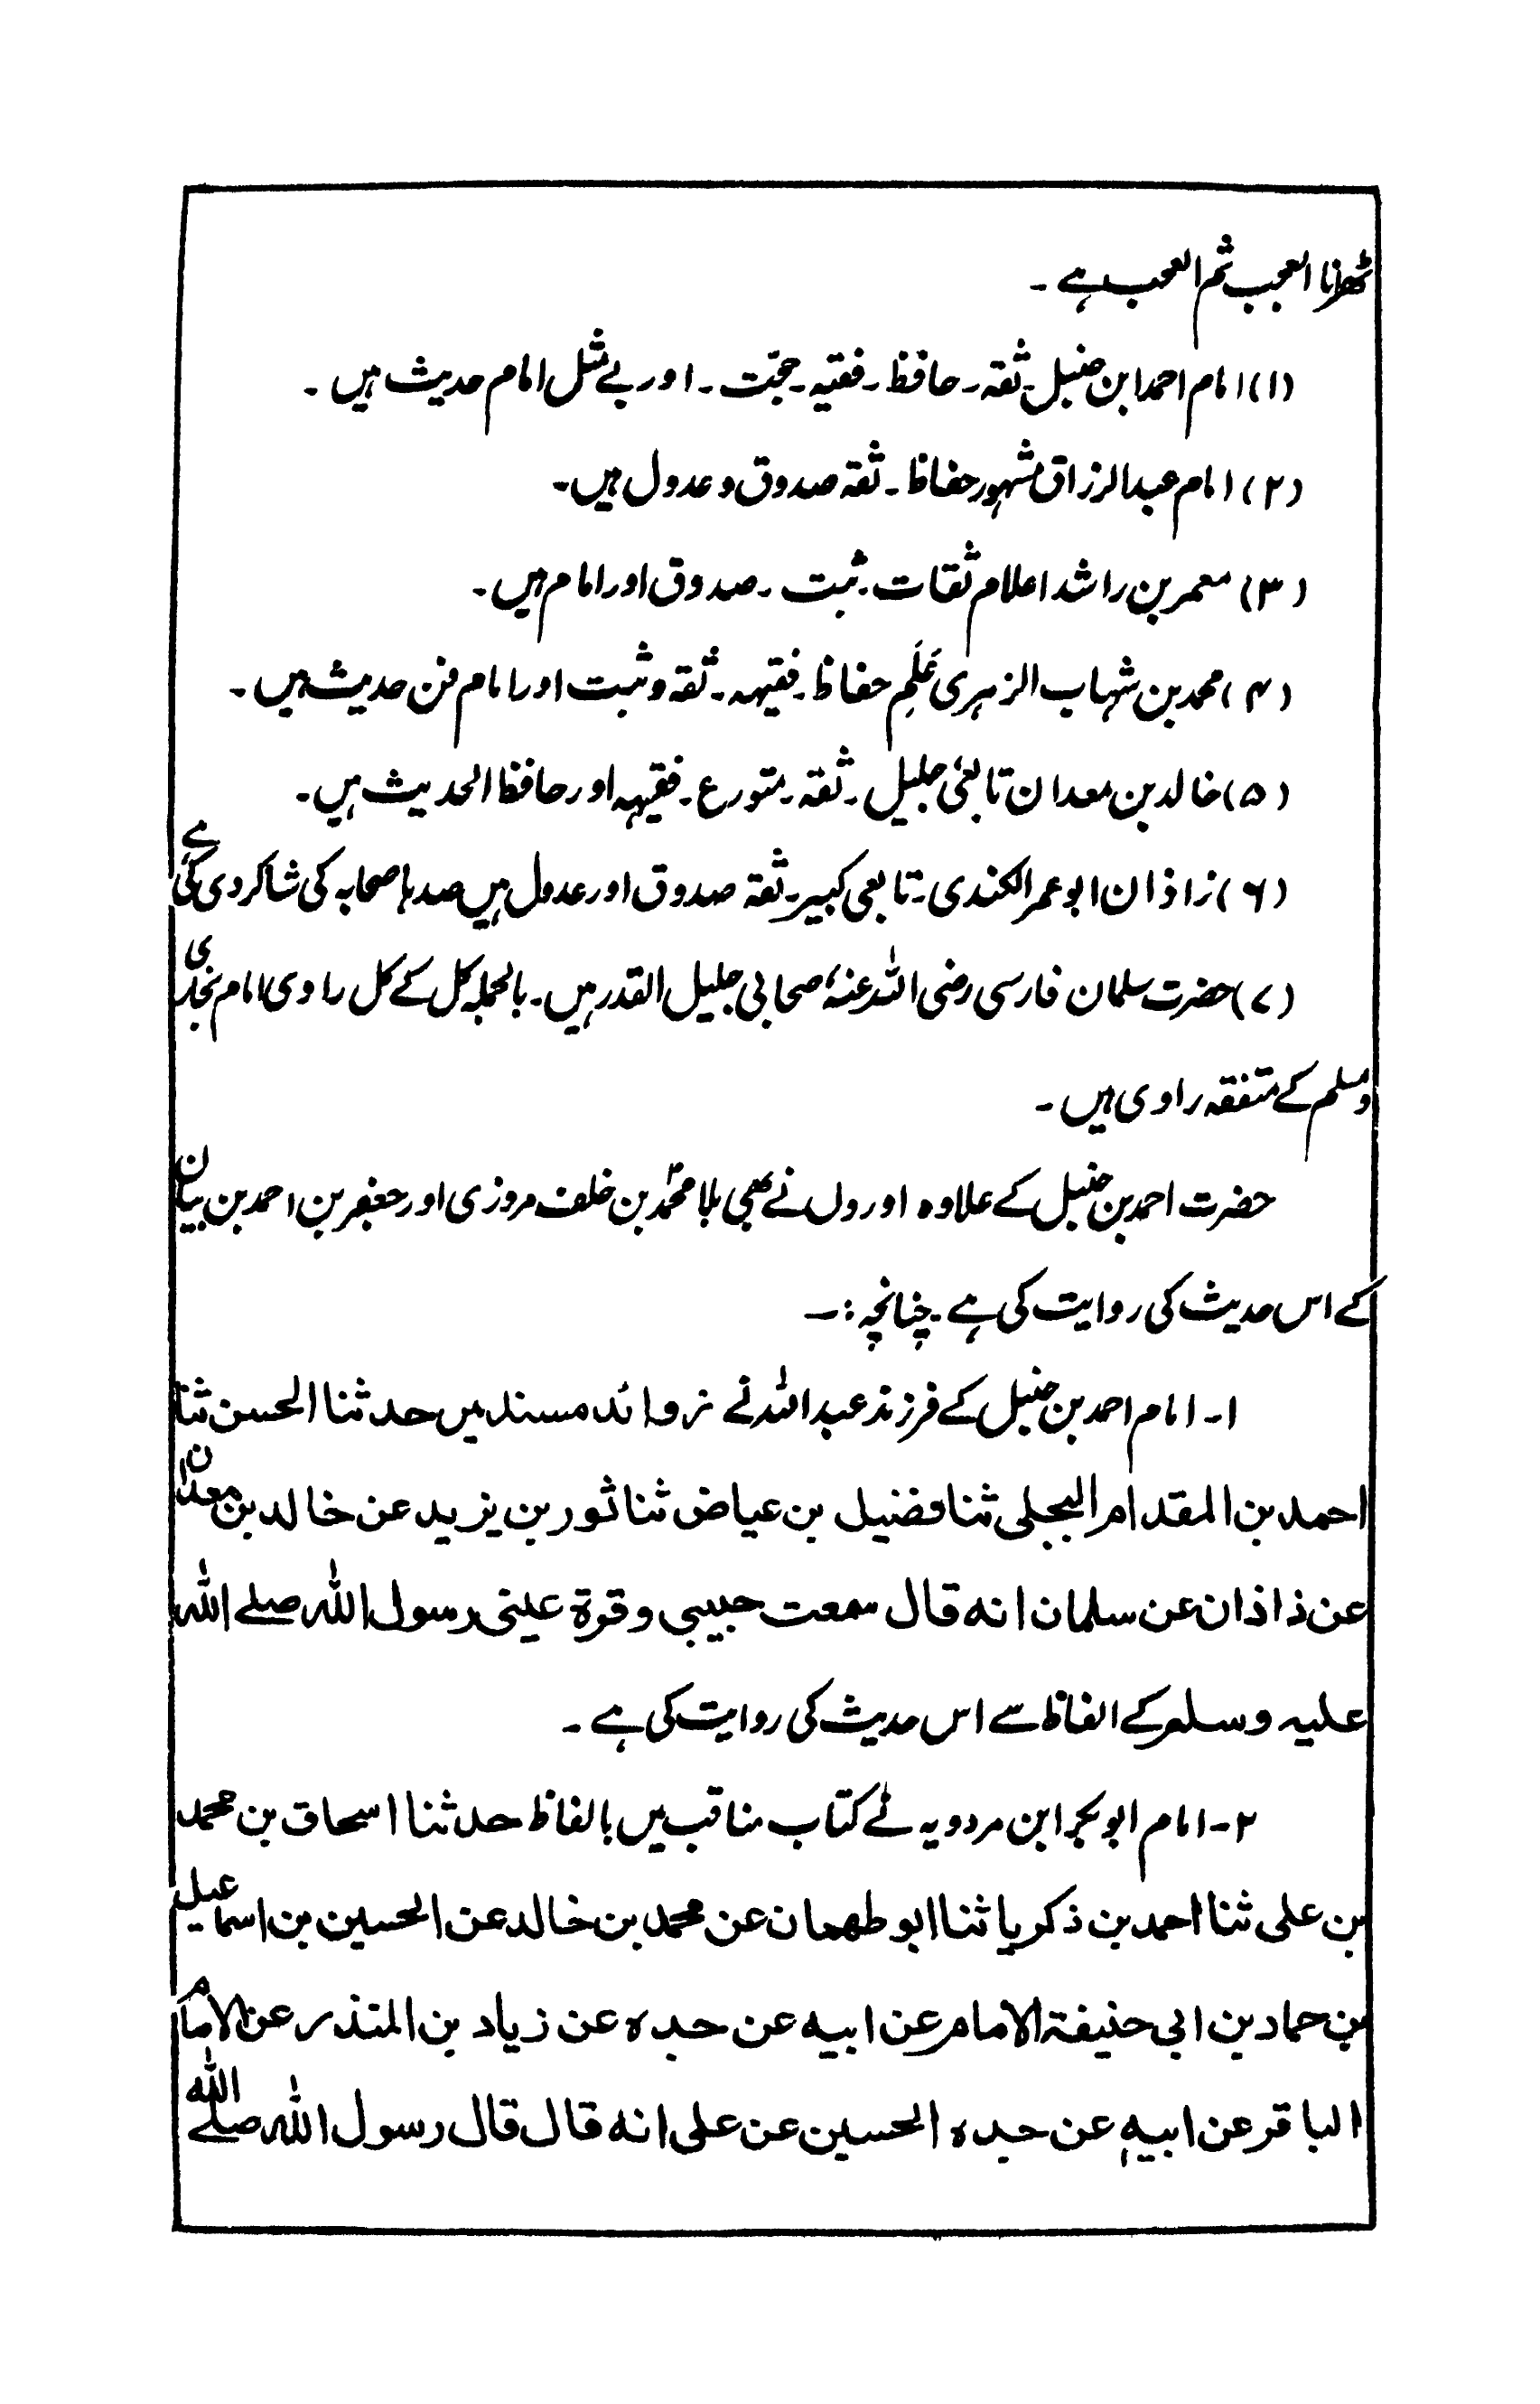 ٹھرانا العجب ثم العجب ہے ۔
(۱) امام احمد ابن حنبل۔ ثقہ۔ حافظ ۔ فقیہ۔ حجت ۔ اور بے مثل امام حدیث ہیں ۔
(۲) امام عبدالرزاق مشہور حفاظ ۔ ثقہ صدوق و عدول ہیں۔
(۳) معمر بن راشد اعلام ثقات۔ ثبت ۔ صدوق اور امام ہیں۔
(۴) محمد بن شہاب الزہری عَلَمِ حفاظ ۔ فقیہہ ۔ ثقہ و ثبت اور امام فن حدیث ہیں ۔
(۵) خالد بن معدان تابعیٔ جلیل ۔ ثقہ ۔ متورع ۔ فقیہہ اور حافظ الحدیث ہیں۔
(۶) زاذان ابو عمر الکندی۔ تابعی کبیر۔ ثقہ صدوق اور عدول ہیں صدہا صحابہ کی شاگردی کی ہے
(۷) حضرت سلمان فارسی رضی اللہ عنہٗ صحابی جلیل القدر ہیں ۔ بالجملہ کل کے کل راوی امام بخاری
و مسلم کے متفقہ راوی ہیں ۔
حضرت احمد بن حنبل کے علاوہ اوروں نے بھی بلا محمّد بن خلف مروزی اور جعفر بن احمد بن بیان
کے اس حدیث کی روایت کی ہے ۔ چنانچہ :۔
۱۔ امام احمد بن حنبل کے فرزند عبداللہ نے زوائد مسند میں حدثنا الحسن ثنا
احمد بن المقدام العجلی ثنا فضیل بن عیاض ثنا ثور بن یزید عن خالد بن معدان
عن ذاذان عن سلمان انہ قال سمعت حبیبی و قرۃ عینی رسول اللہ صلے اللہ
علیہ وسلم کے الفاظ سے اس حدیث کی روایت کی ہے ۔
۲۔ امام ابوبکر ابن مردویہ نے کتاب مناقب میں بالفاظ حدثنا اسحاق بن محمد
بن علی ثنا احمد بن ذکریا ثنا ابو طھمان عن محمد بن خالد عن الحسین بن اسماعیل
بن حماد بن ابی حنیفۃ الامام عن ابیہ عن جدہ عن زیاد بن المنذر عن الامام
الباقر عن ابیہٖ عن جدہ الحسین عن علی انہ قال قال رسول اللہ صلے اللہ